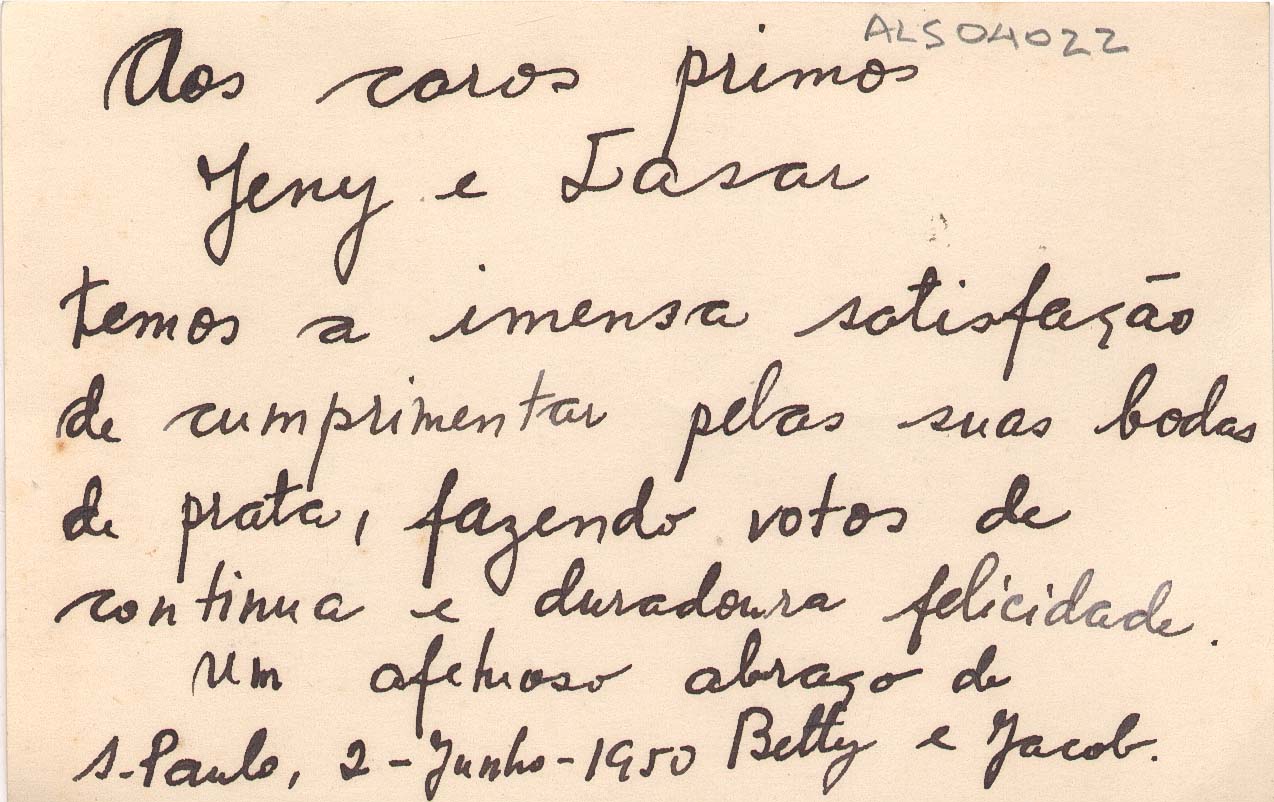 ALS04022
Aos caros primos
Jeny e Lasar
temos a imensa satisfação
de cumprimentar pelas suas bodas
de prata, fazendo votos de
continua e duradoura felicidade.
Um afetuoso abraço de
S. Paulo, 2 - Junho - 1950 Betty e Jacob.